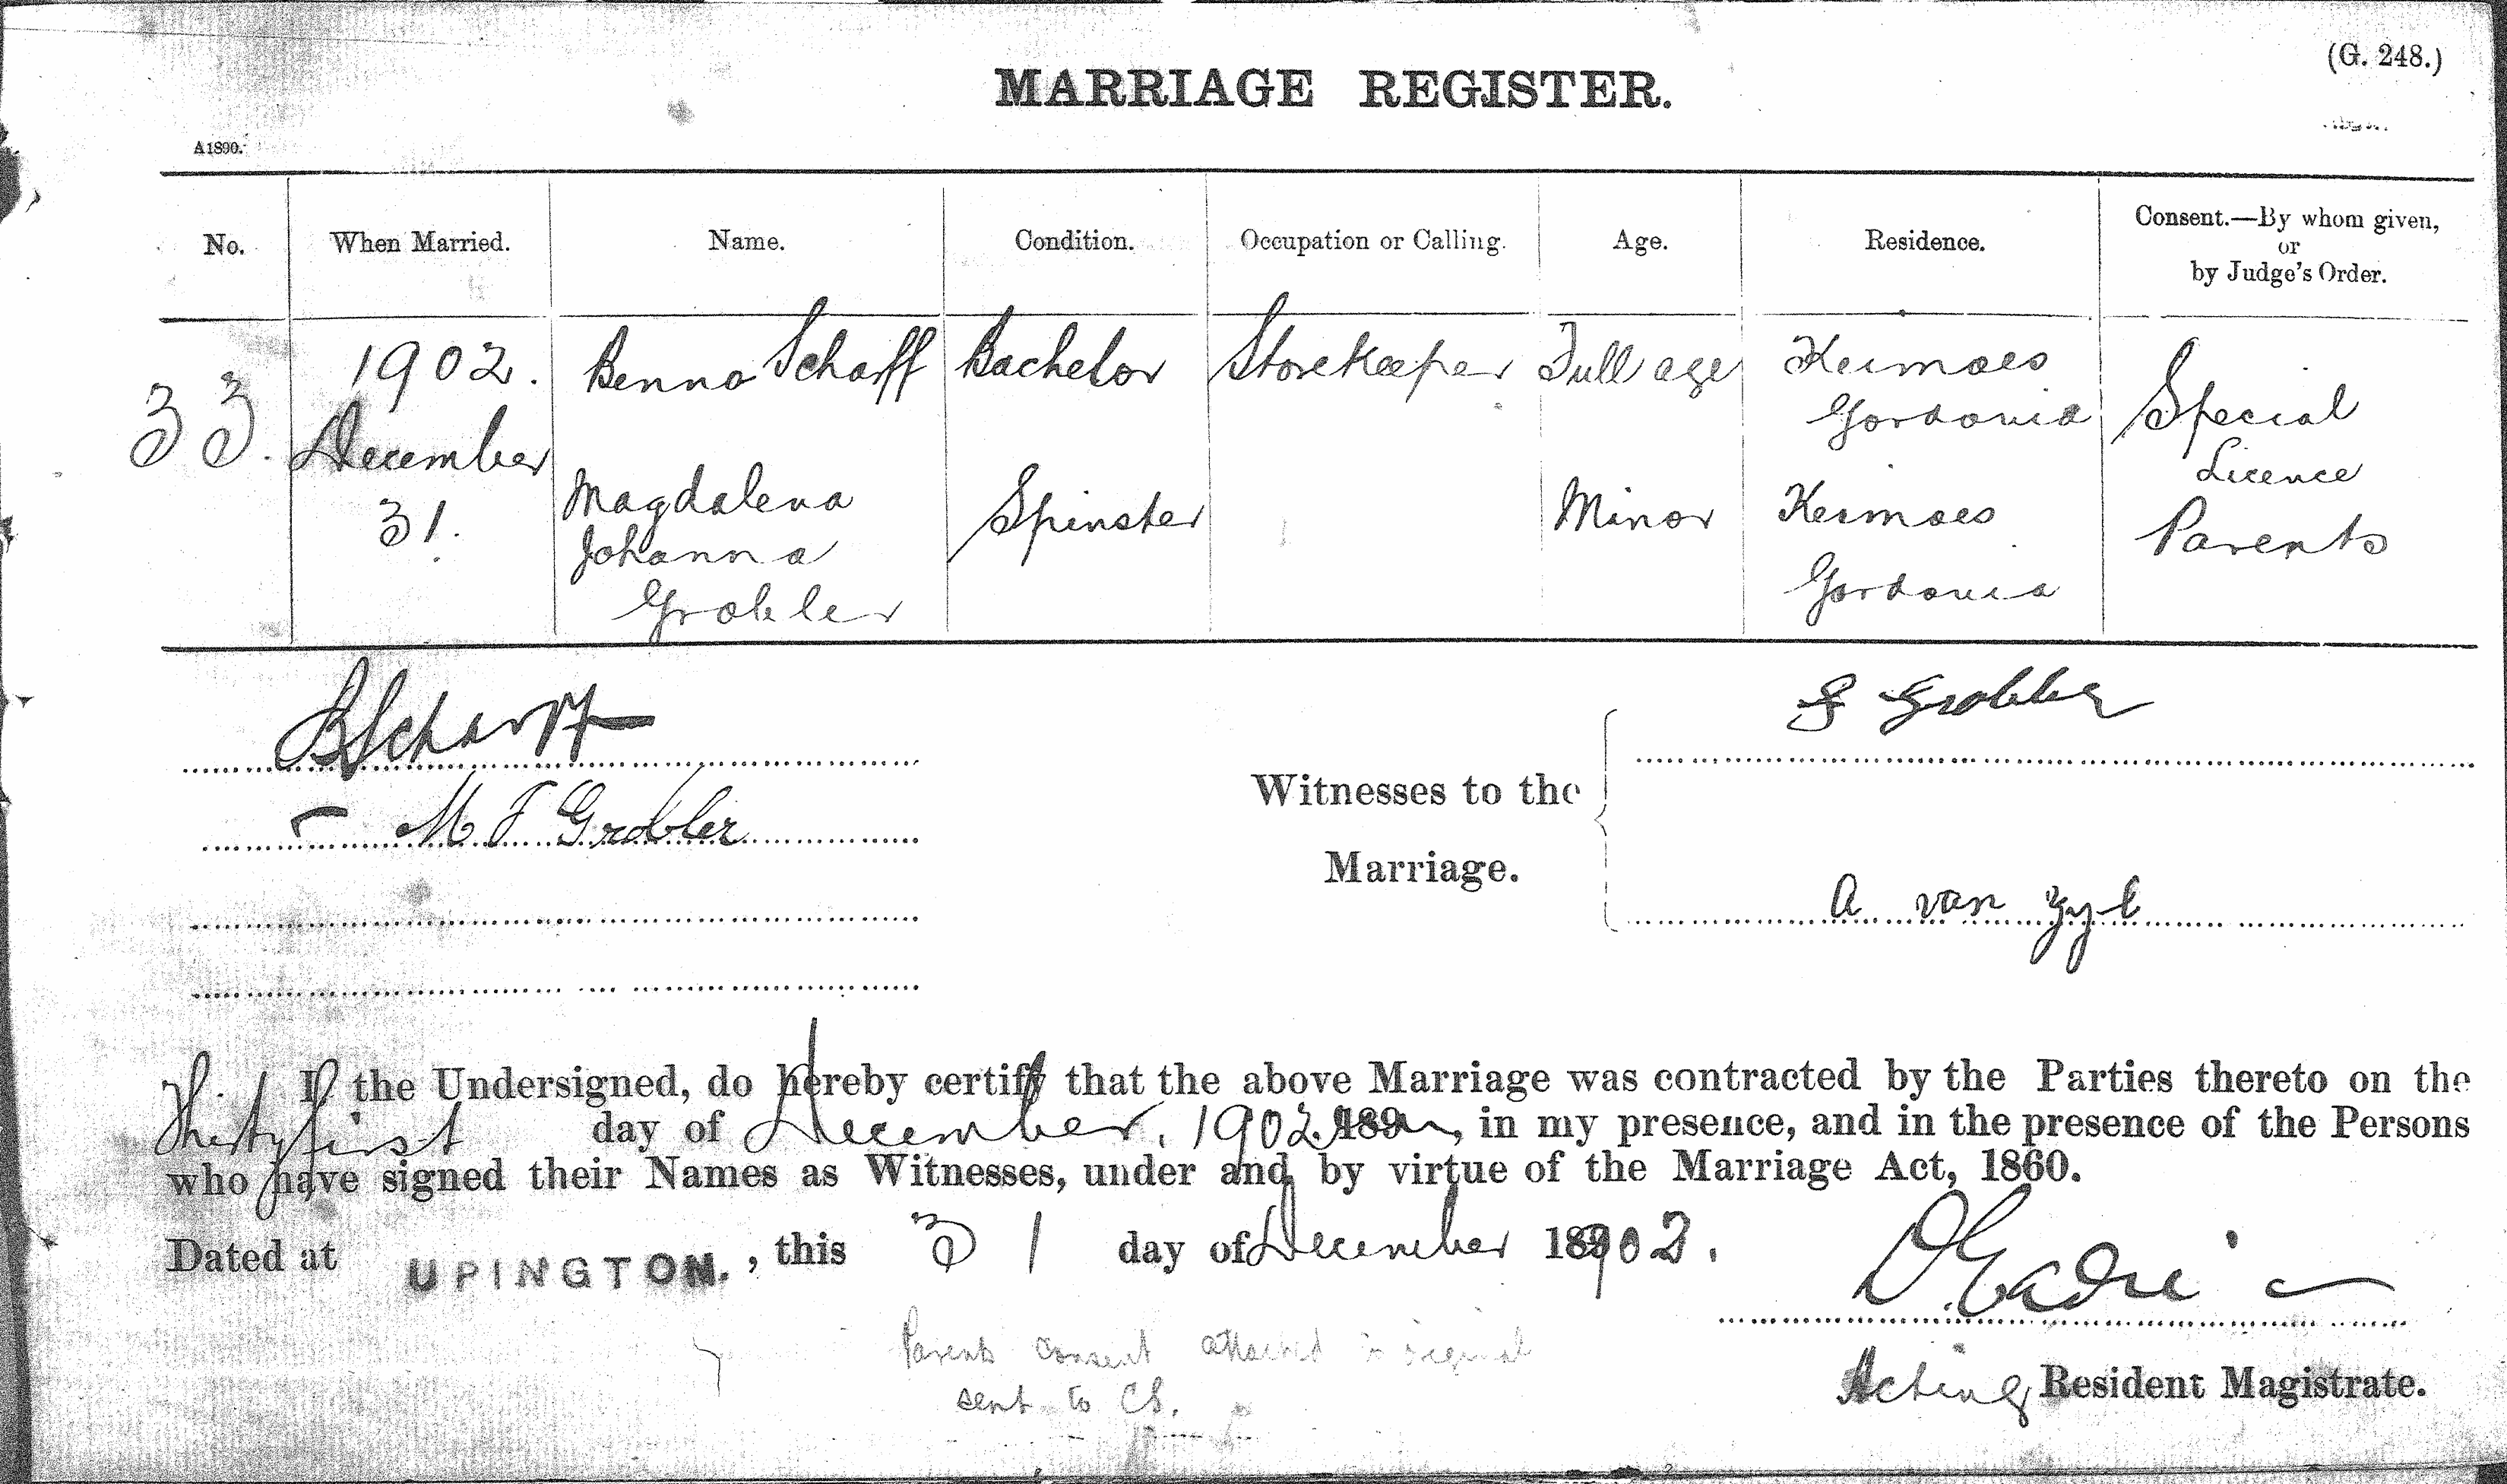 (G. 248.)
MARRIAGE REGISTER.
A1890.
No. When Married. Name. Condition. Occupation or Calling. Age. Residence. Consent.—By whom given, or by Judge's Order.
33. 1902. December 31. Benno Scharff Bachelor Storekeeper Full age Keimoes Gordonia Special Licence
Magdalena Johanna Grobler Spinster Minor Keimoes Gordonia Parents
BScharff
M J Grobler
Witnesses to the Marriage.
Grobler
A van Zyl
I the Undersigned, do hereby certify that the above Marriage was contracted by the Parties thereto on the
Thirty first day of December, 1902 189 , in my presence, and in the presence of the Persons
who have signed their Names as Witnesses, under and by virtue of the Marriage Act, 1860.
Dated at UPINGTON. , this 31 day of December 1902.
Acting Resident Magistrate.
Parents consent attached to original
sent to CS.